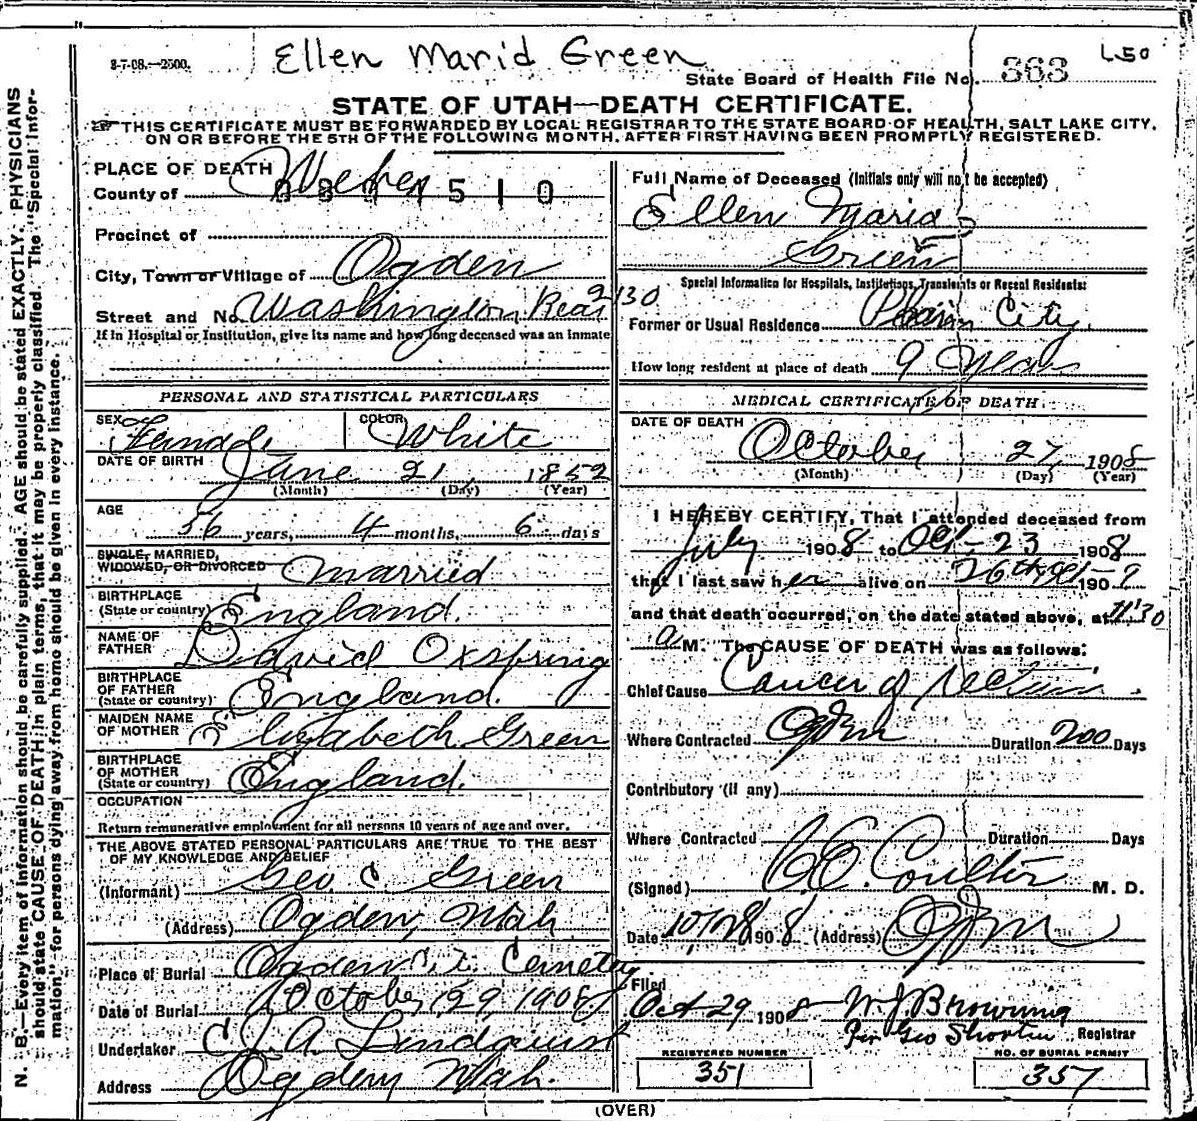 8-7-08.—2500.
Ellen Marid Green
L50
State Board of Health File No. 363
STATE OF UTAH—DEATH CERTIFICATE.
THIS CERTIFICATE MUST BE FORWARDED BY LOCAL REGISTRAR TO THE STATE BOARD OF HEALTH, SALT LAKE CITY,
ON OR BEFORE THE 5TH OF THE FOLLOWING MONTH, AFTER FIRST HAVING BEEN PROMPTLY REGISTERED.
N. B.—Every item of information should be carefully supplied. AGE should be stated EXACTLY. PHYSICIANS
should state CAUSE OF DEATH in plain terms, that it may be properly classified. The "Special Infor-
mation" for persons dying away from home should be given in every instance.
PLACE OF DEATH
County of Weber
510
Precinct of
City, Town or Village of Ogden
Street and No. Washington Rear 2130
If in Hospital or Institution, give its name and how long deceased was an inmate
PERSONAL AND STATISTICAL PARTICULARS
SEX Female COLOR White
DATE OF BIRTH June 21 1852
(Month) (Day) (Year)
AGE
56 years, 4 months, 6 days
SINGLE, MARRIED,
WIDOWED, OR DIVORCED Married
BIRTHPLACE
(State or country) England.
NAME OF
FATHER David Oxspring
BIRTHPLACE
OF FATHER
(State or country) England.
MAIDEN NAME
OF MOTHER Elizabeth Green
BIRTHPLACE
OF MOTHER
(State or country) England.
OCCUPATION
Return remunerative employment for all persons 10 years of age and over.
THE ABOVE STATED PERSONAL PARTICULARS ARE TRUE TO THE BEST
OF MY KNOWLEDGE AND BELIEF
(Informant) Geo C Green
(Address) Ogden, Utah
Place of Burial Ogden Cemetery
Date of Burial October 29, 1908
Undertaker C. J. A. Lindquist
Address Ogden Utah.
Full Name of Deceased (Initials only will not be accepted)
Ellen Maria
Green
Special Information for Hospitals, Institutions, Transients or Recent Residents:
Former or Usual Residence Plain City
How long resident at place of death 9 Years
MEDICAL CERTIFICATE OF DEATH
DATE OF DEATH
October 27 1908
(Month) (Day) (Year)
I HEREBY CERTIFY, That I attended deceased from
July 1908 to Oct-23 1908
that I last saw her alive on 26th Oct 190
and that death occurred, on the date stated above, at 11:30
a M. The CAUSE OF DEATH was as follows:
Chief Cause Cancer of rectum.
Where Contracted Ogden Duration 200 Days
Contributory (if any)
Where Contracted Duration Days
(Signed) Coulter M. D.
Date 10/28 1908 (Address) Ogden
Filed
Oct 29 1908 W. J. Browning
Per Geo Shorten Registrar
REGISTERED NUMBER
351
NO. OF BURIAL PERMIT
357
(OVER)